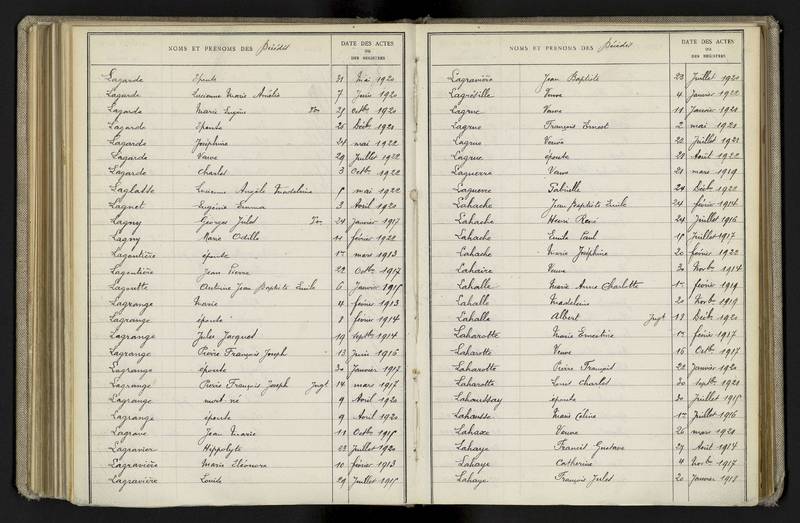 NOMS ET PRÉNOMS DES Décédés
DATE DES ACTES
OU
DES REGISTRES
Lagarde épouse 31 Mai 1920
Lagarde Lucienne Marie Amélie 7 Juin 1920
Lagarde Marie Eugène 25 octbre 1920
Lagarde épouse 26 Décbre 1920
Lagarde Joséphine 24 mai 1922
Lagarde Veuve 29 Juillet 1922
Lagarde Charles 3 Octbre 1922
Laglasse Lucienne Angèle Madeleine mai 1922
Lagnet Eugénie Emma 3 Avril 1920
Lagny Georges Jules 24 Janvier 1917
Lagny Marie Odille 11 février 1922
Lagoutière épouse 1er mars 1913
Lagoutière Jean Pierre 22 Octbre 1917
Lagoutte Antoine Jean Baptiste Emile 6 Janvier 1915
Lagrange Marie 4 février 1913
Lagrange épouse 8 février 1914
Lagrange Jules Jacques 19 septbre 1914
Lagrange Pierre François Joseph 13 Juin 1916
Lagrange épouse 30 Janvier 1917
Lagrange Pierre François Joseph Jugt 14 mars 1917
Lagrange mort-né 9 Avril 1920
Lagrange épouse 9 Avril 1920
Lagrave Jean Marie 11 Octbre 1915
Lagravier Hippolyte 23 Juillet 1920
Lagravière Marie Eléonore 10 février 1913
Lagravière Louise 29 Juillet 1915
NOMS ET PRÉNOMS DES Décédés
DATE DES ACTES
OU
DES REGISTRES
Lagravière Jean Baptiste 23 Juillet 1920
Lagrésille Veuve 4 Janvier 1922
Lagrue Veuve 11 Janvier 1920
Lagrue François Ernest 2 mai 1920
Lagrue Veuve 22 Juillet 1921
Lagrue épouse 28 Août 1922
Laguerre Veuve 21 mars 1919
Laguerre Gabrielle 24 Décbre 1922
Lahache Jean Baptiste Emile 24 février 1914
Lahache Henri René 24 Juillet 1916
Lahache Emile Paul 15 Juillet 1917
Lahache Marie Joséphine 20 février 1922
Lahaire Veuve 30 Novbre 1914
Lahalle Marie Anne Charlotte 1er février 1919
Lahalle Madeleine 20 Novbre 1919
Lahalle Albert Jugt 13 Décbre 1920
Laharotte Marie Ernestine 1er février 1917
Laharotte Veuve 16 Octbre 1917
Laharotte Pierre François 22 Janvier 1920
Laharotte Louis Charles 30 septbre 1921
Lahoussay épouse 30 Juillet 1915
Lahausse Marie Céline 1er Juillet 1916
Lahaxe Veuve 26 mars 1920
Lahaye Francis Gustave 29 Août 1914
Lahaye Catherine 4 Novbre 1917
Lahaye François Jules 20 Janvier 1918